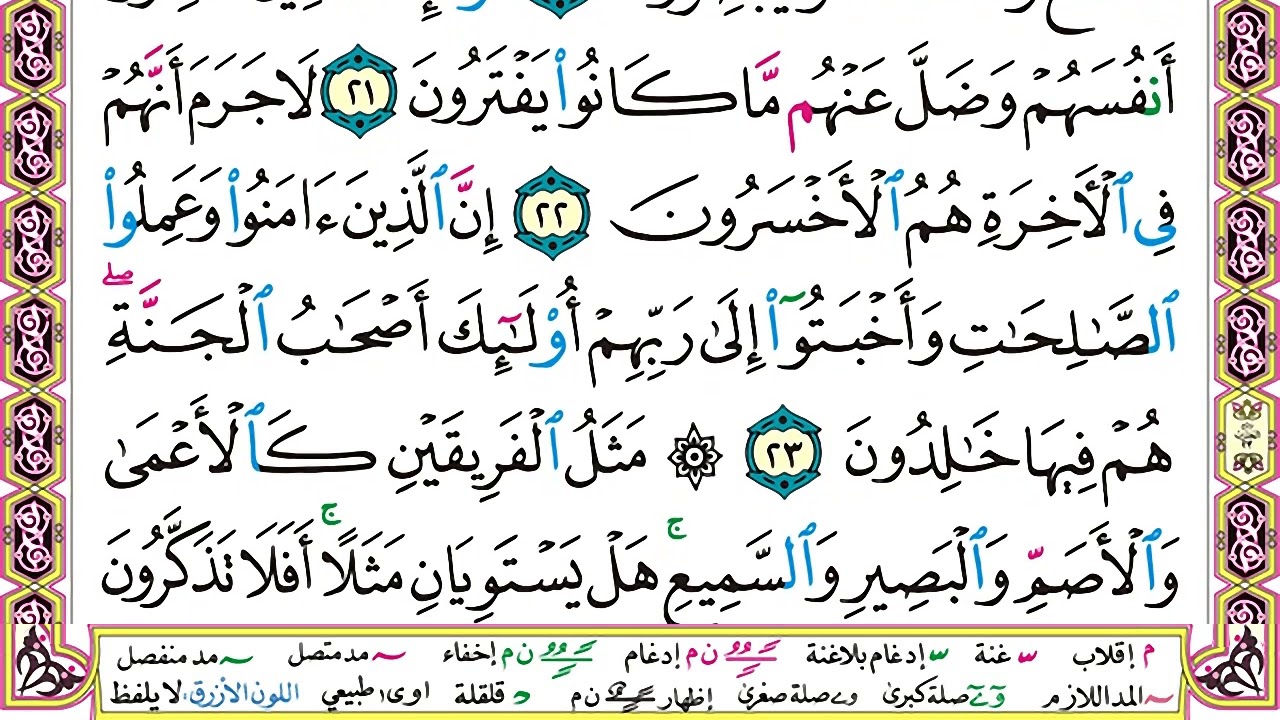 أَنفُسَهُمْ وَضَلَّ عَنْهُم مَّا كَانُوا۟ يَفْتَرُونَ ٢١ لَا جَرَمَ أَنَّهُمْ
فِى ٱلْأَخِرَةِ هُمُ ٱلْأَخْسَرُونَ ٢٢ إِنَّ ٱلَّذِينَ ءَامَنُوا۟ وَعَمِلُوا۟
ٱلصَّـٰلِحَـٰتِ وَأَخْبَتُوٓا۟ إِلَىٰ رَبِّهِمْ أُو۟لَـٰٓئِكَ أَصْحَـٰبُ ٱلْجَنَّةِ ۖ
هُمْ فِيهَا خَـٰلِدُونَ ٢٣ ۞ مَثَلُ ٱلْفَرِيقَيْنِ كَٱلْأَعْمَىٰ
وَٱلْأَصَمِّ وَٱلْبَصِيرِ وَٱلسَّمِيعِ ۚ هَلْ يَسْتَوِيَانِ مَثَلًا ۚ أَفَلَا تَذَكَّرُونَ
م إقلاب غنة إدغام بلا غنة ن م إدغام ن م إخفاء مد متصل مد منفصل
المد اللازم صلة كبرى و ے صلة صغرى إظهار ن م د قلقلة اوى١ طبيعي اللون الأزرق: لا يلفظ